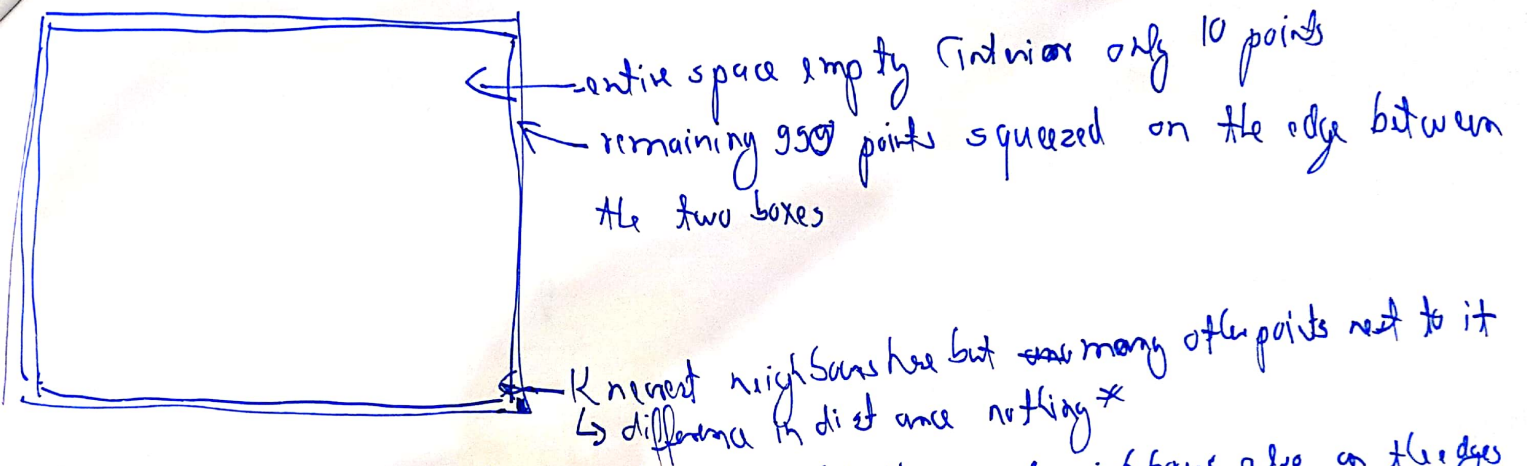 entire space empty (interior only 10 points
remaining 990 points squeezed on the edge between
the two boxes
K nearest neighbours here but many other points next to it
↳ difference in distance nothing *
also on the edges